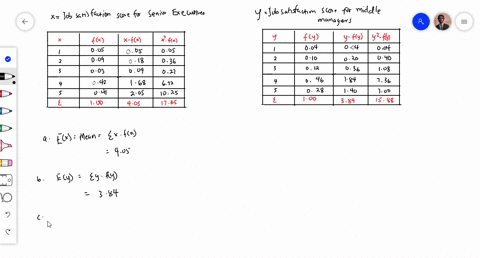 x = Job satisfaction score for Senior Executives
x f(x) x·f(x) x² f(x)
1 0.05 0.05 0.05
2 0.09 0.18 0.36
3 0.03 0.09 0.27
4 0.42 1.68 6.72
5 0.41 2.05 10.25
Σ 1.00 4.05 17.65
y = Job satisfaction score for middle managers
y f(y) y·f(y) y²·f(y)
1 0.04 0.04 0.04
2 0.10 0.20 0.40
3 0.12 0.36 1.08
4 0.46 1.84 7.36
5 0.28 1.40 7.00
Σ 1.00 3.84 15.88
a. E(x) = Mean = Σx·f(x)
= 4.05
b. E(y) = Σy·f(y)
= 3.84
c.